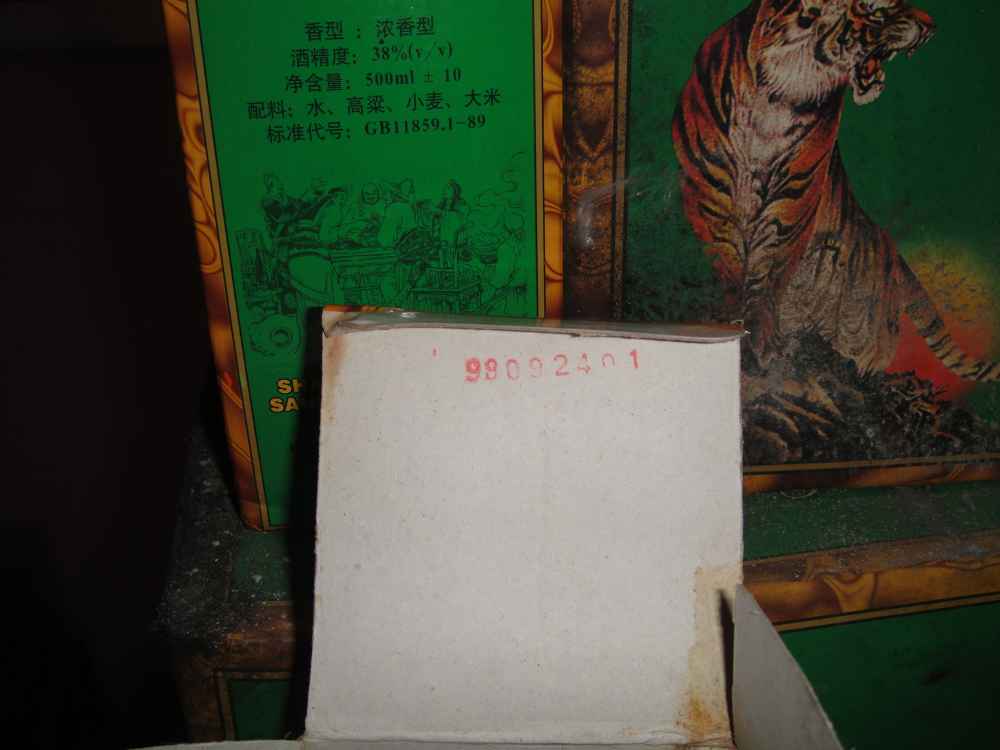 香型：浓香型
酒精度：38%(v/v)
净含量：500ml ± 10
配料：水、高粱、小麦、大米
标准代号：GB11859.1-89
SH
SA
99092401